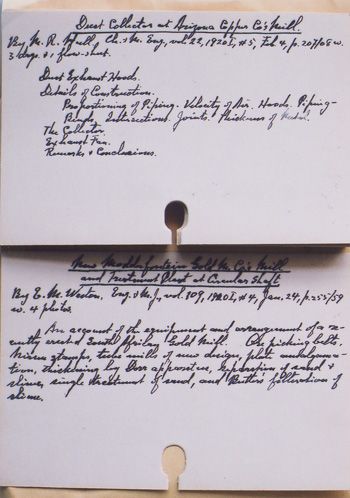 Dust Collector at Arizona Copper Co's Mill.
By M. R. Hull, Ch. & M. Eng., vol 22, 1920I, #5, Feb 4, p. 207/08 w.
3 dwgs. & 1 flow-sheet.
Dust Exhaust Hoods.
Details of Construction.
Proportioning of Piping. Velocity of Air. Hoods. Piping-
Bends, Intersections. Joints. Thickness of Metal.
The Collector.
Exhaust Fan.
Remarks & Conclusions.
New Modderfontein Gold M. Co's Mill
and Treatment Plant at Circular Shaft
By E. M. Weston, Eng. & M. J., vol. 109, 1920I, #4, Jan. 24, p. 255/59
w. 4 photos.
An account of the equipment and arrangement of a re-
cently erected South African Gold Mill. Ore picking belts,
Nissen stamps, tube mills of new design, plate amalgama-
tion, thickening by Dorr apparatus, separation of sand &
slimes, single treatment of sand, and Butters filtration of
slime.